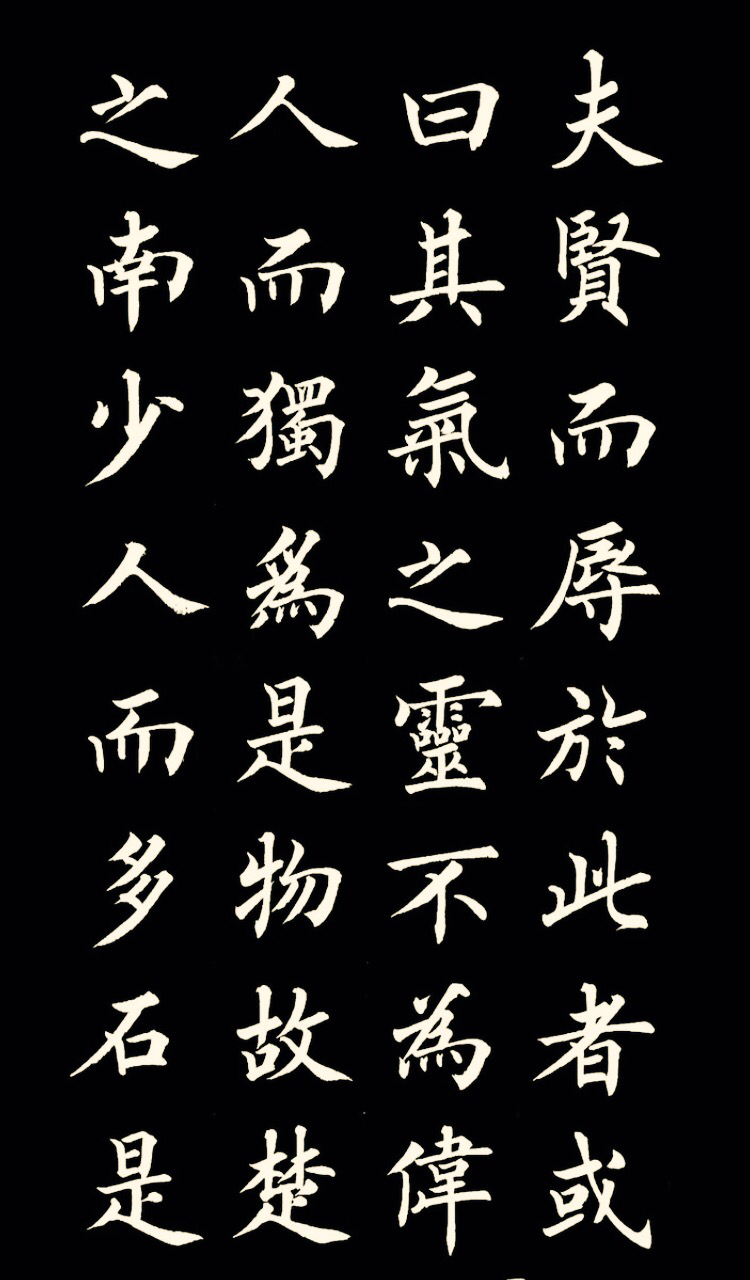 夫賢而辱於此者或
曰其氣之靈不為偉
人而獨爲是物故楚
之南少人而多石是